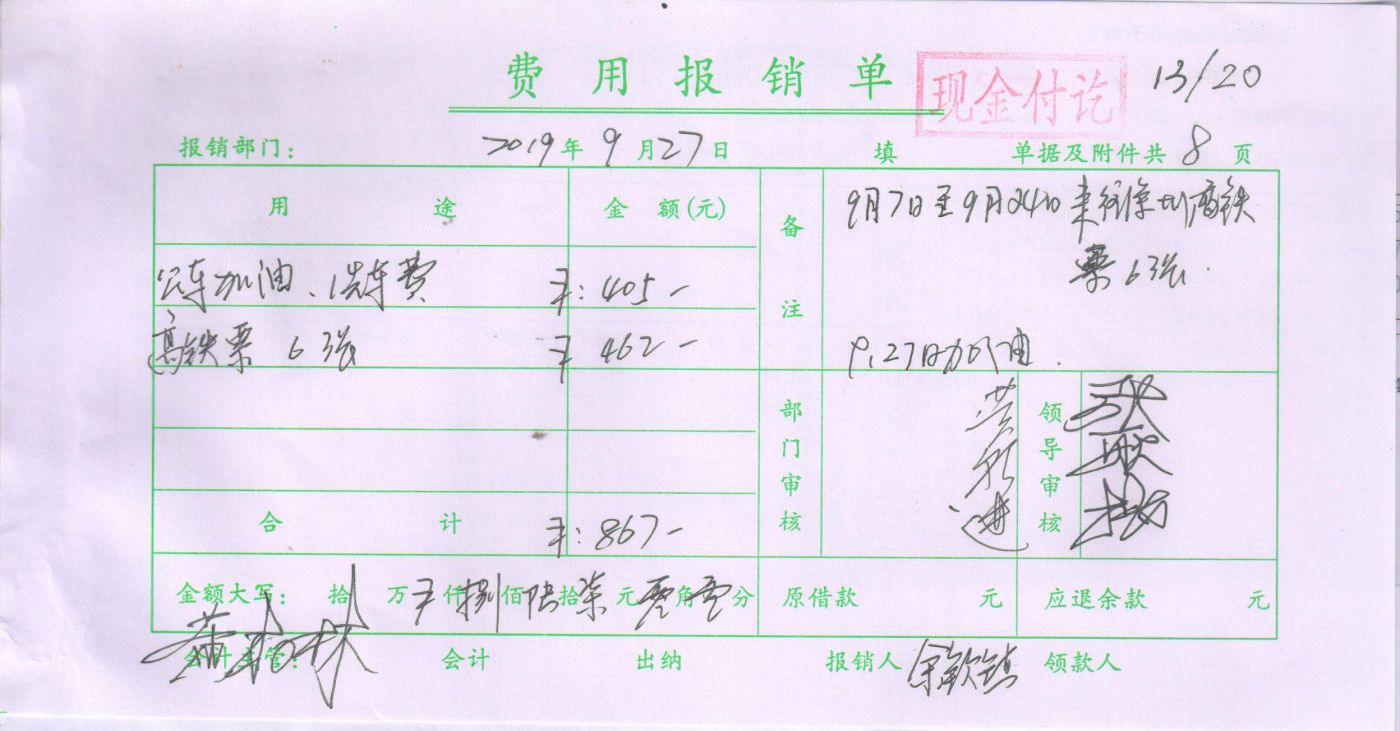 费用报销单
现金付讫
13/20
报销部门： 2019年9月27日 填 单据及附件共8页
用途 金额(元) 备注
9月7日至9月24日来往徐州高铁
票6张.
公车加油、洗车费 ¥：405-
高铁票 6张 ¥ 462-
9.27日加油.
部门审核 领导审核
合计 ¥：867-
金额大写： 拾万¥仟捌佰陆拾柒元零角零分 原借款 元 应退余款 元
会计主管： 会计 出纳 报销人 余钦镇 领款人